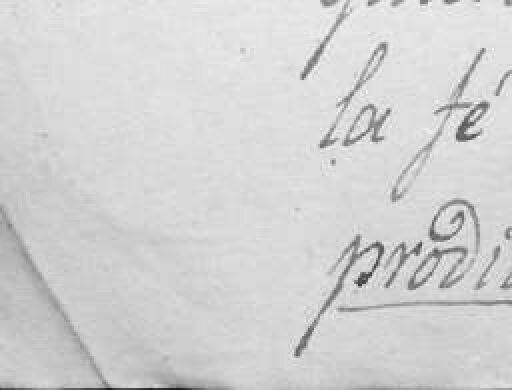 la fé
prodi